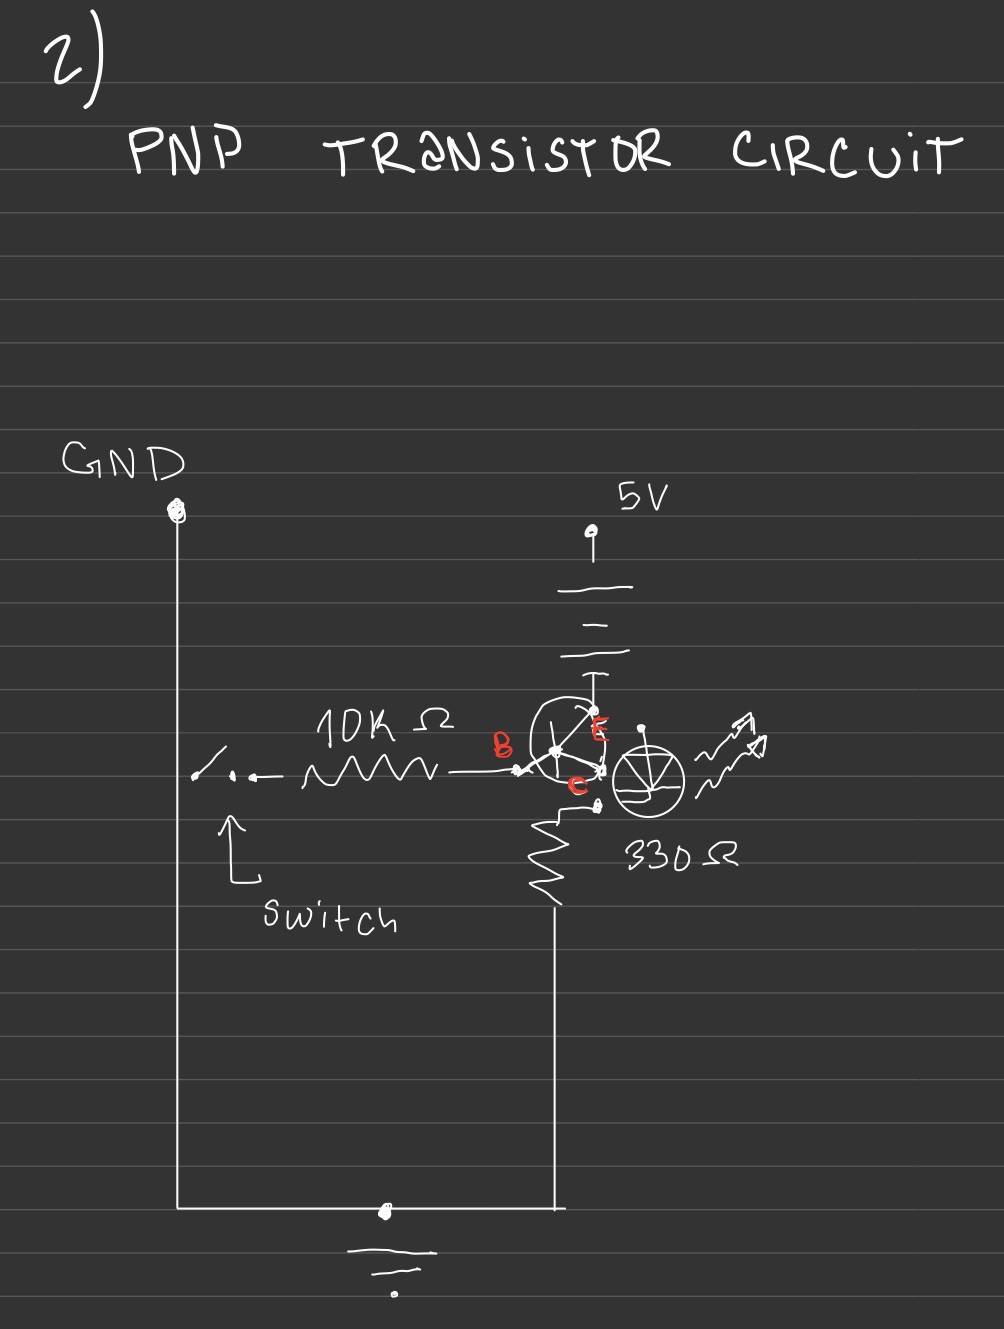 2)
PNP TRANSISTOR CIRCUIT
GND
5V
10K Ω
B
E
C
330 Ω
Switch